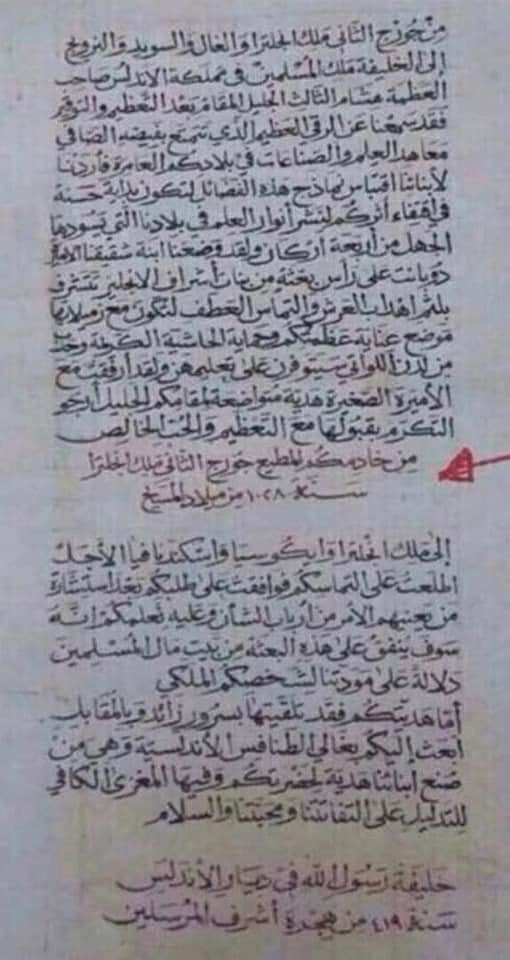 من جورج الثاني ملك انجلترا والغال والسويد والنرويج
إلى الخليفة ملك المسلمين في مملكة الأندلس صاحب
العظمة هشام الثالث الجليل المقام بعد التعظيم والتوقير
فقد سمعنا عن الرقي العظيم الذي تتمتع بفيضه الصافي
معاهد العلم والصناعات في بلادكم العامرة فأردنا
لأبنائنا اقتباس نماذج هذه الفضائل لتكون بداية حسنة
في اقتفاء أثركم لنشر أنوار العلم في بلادنا التي يسودها
الجهل من أربعة أركان ولقد وضعنا ابنة شقيقنا الأميرة
دوبانت على رأس بعثة من بنات أشراف الانجليز تتشرف
بلثم أهداب العرش والتماس العطف لتكون مع زميلاتها
موضع عناية عظمتكم وحماية الحاشية الكريمة
من لدن اللواتي سيتوفرن على تعليمهن ولقد أرفقت مع
الأميرة الصغيرة هدية متواضعة لمقامكم الجليل أرجو
التكرم بقبولها مع التعظيم والحب الخالص
من خادمكم المطيع جورج الثاني ملك انجلترا
سنة ١٠٢٨ من ميلاد المسيح
إلى ملك انجلترا وايكوسيا واسكندنافيا الأجل
اطلعت على التماسكم فوافقت على طلبكم بعد استشارة
من يعنيهم الأمر من أرباب الشأن وعليه نعلمكم انه
سوف ينفق على هذه البعثة من بيت مال المسلمين
دلالة على مودتنا لشخصكم الملكي
أما هديتكم فقد تلقيتها بسرور زائد وبالمقابل
أبعث إليكم بغالي الطنافس الأندلسية وهي من
صنع ابنائنا هدية لحضرتكم وفيها المغزى الكافي
للتدليل على التفاتتنا ومحبتنا والسلام
خليفة رسول الله في ديار الأندلس
سنة ٤١٩ من هجرة أشرف المرسلين